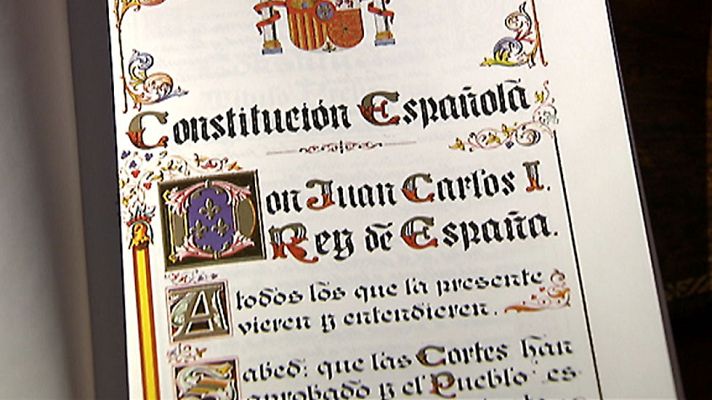 Constitución Española
Don Juan Carlos I.
Rey de España.
A todos los que la presente
vieren y entendieren.
Sabed: que las Cortes han
aprobado y el Pueblo es